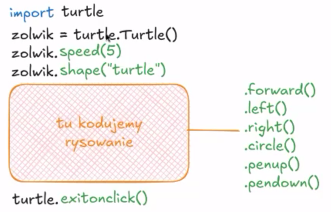 import turtle
zolwik = turtle.Turtle()
zolwik.speed(5)
zolwik.shape("turtle")
tu kodujemy
rysowanie
.forward()
.left()
.right()
.circle()
.penup()
.pendown()
turtle.exitonclick()